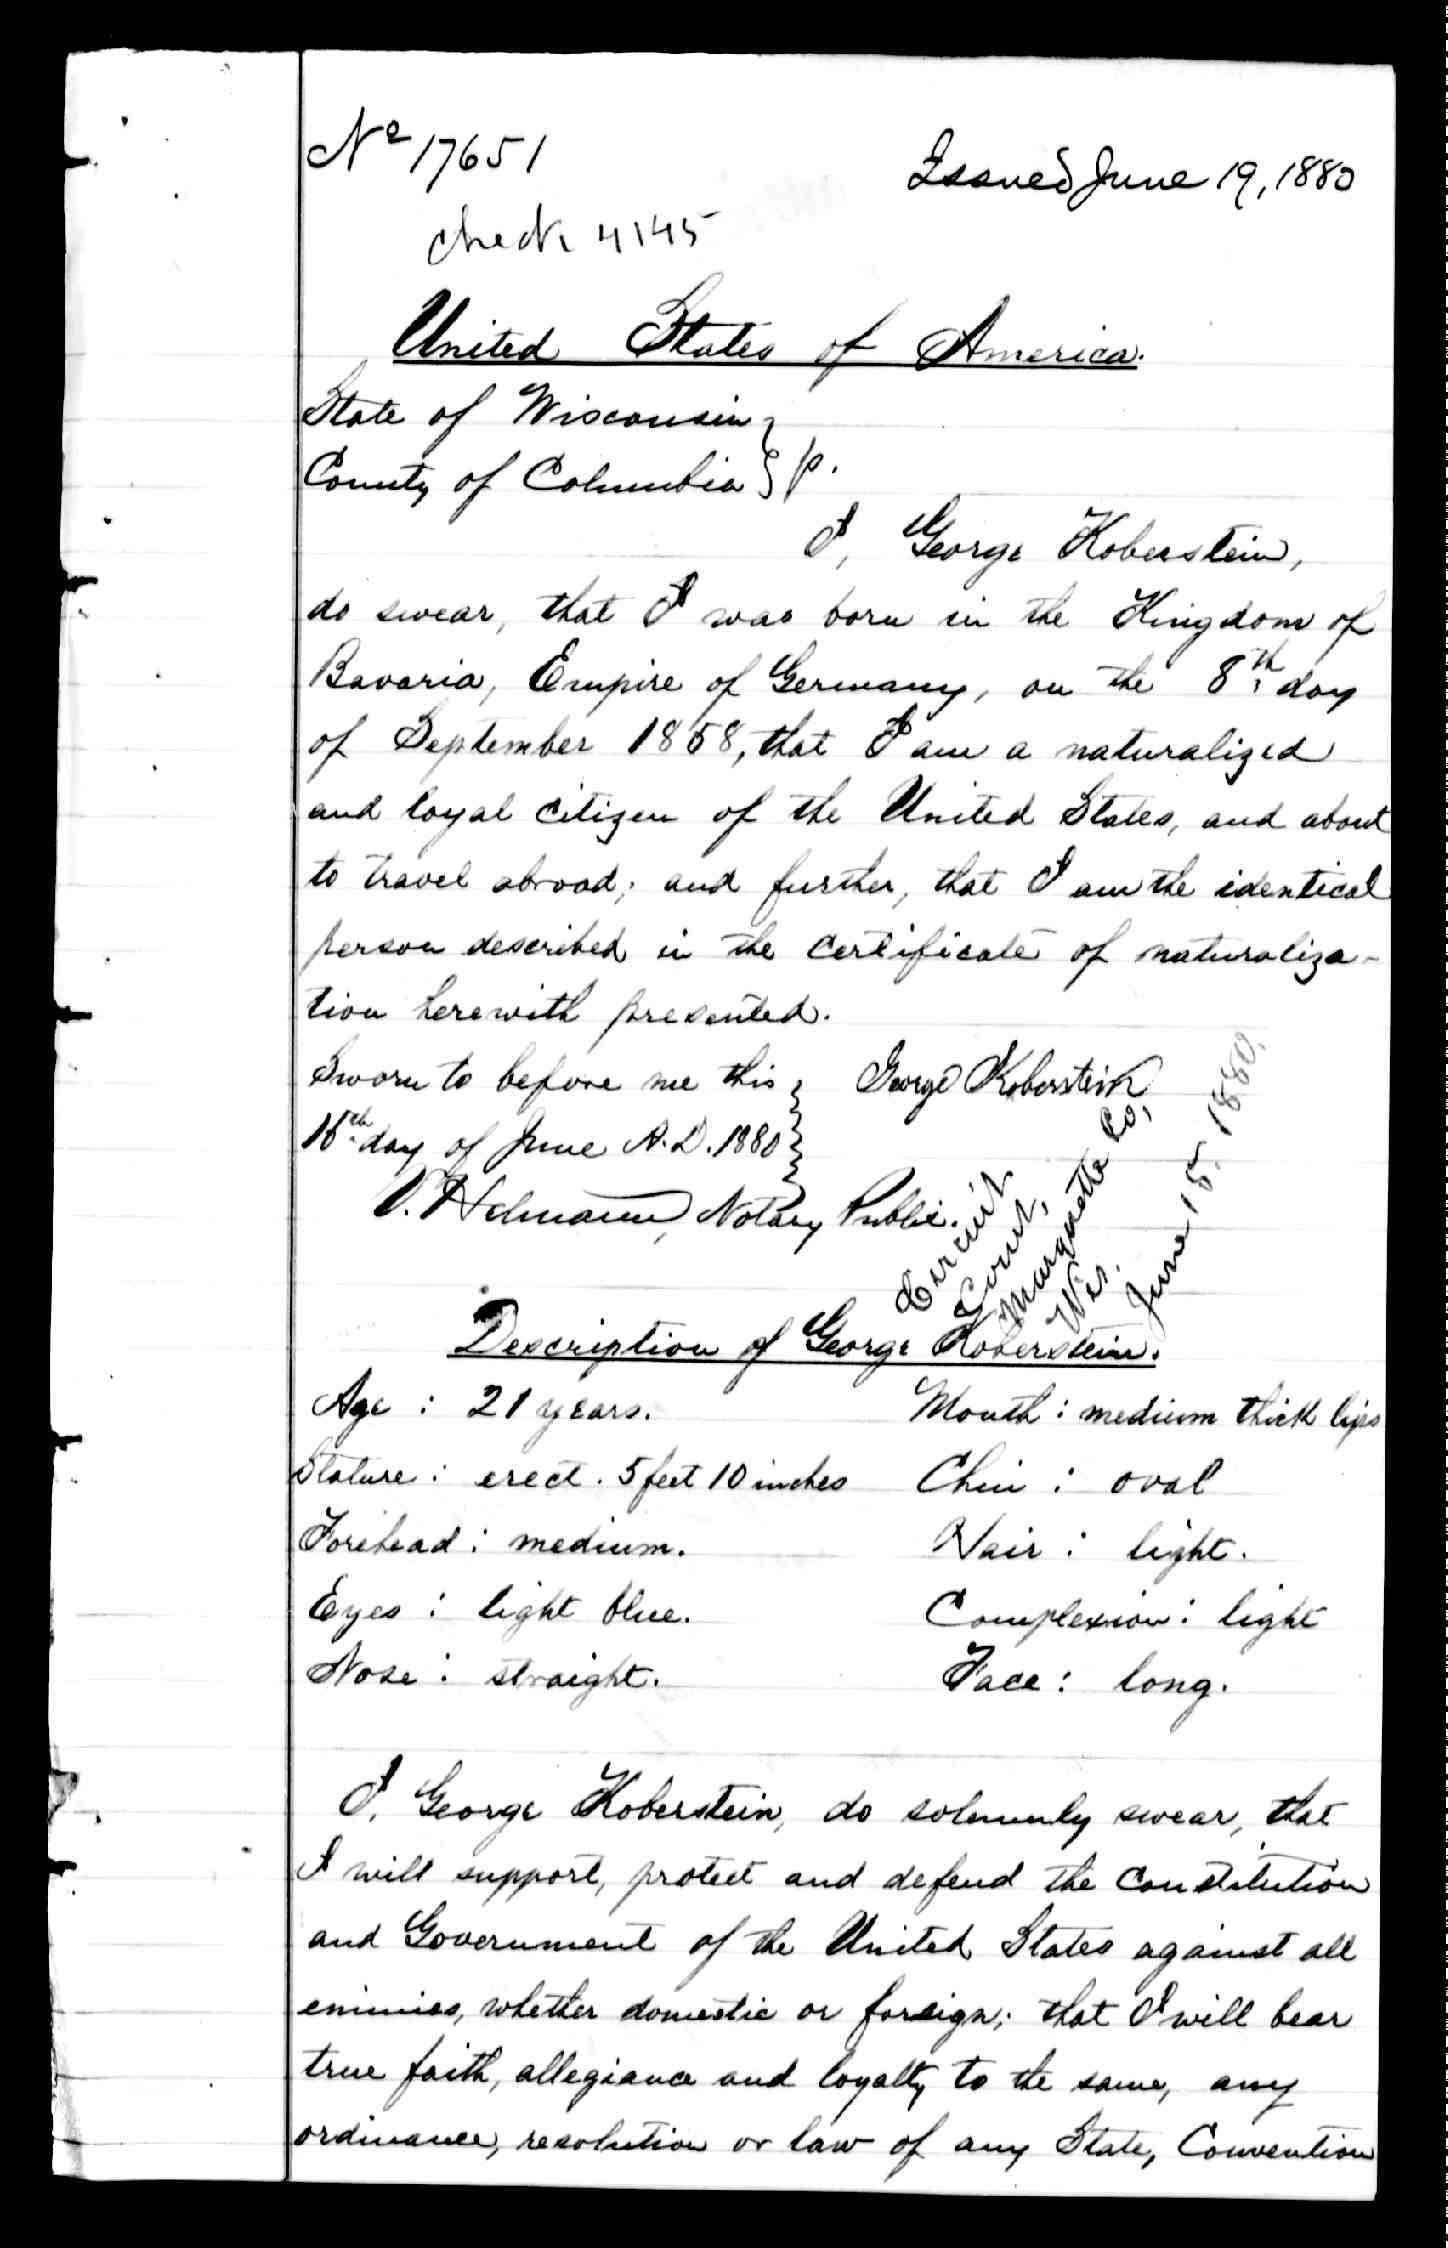 No 17651
Issued June 19, 1880
check 4145
United States of America.
State of Wisconsin
County of Columbia
I, George Koberstein,
do swear, that I was born in the Kingdom of
Bavaria, Empire of Germany, on the 8th day
of September 1858, that I am a naturalized
and loyal citizen of the United States, and about
to travel abroad; and further, that I am the identical
person described in the certificate of naturaliza-
tion herewith presented.
Sworn to before me this
day of June A.D. 1880
George Koberstein
Notary Public.
Circuit
Court,
Marquette Co,
Wis.
June 15, 1880.
Description of George Koberstein.
Age : 21 years.
Mouth : medium thick lips
Stature : erect. 5 feet 10 inches
Chin : oval
Forehead : medium.
Hair : light.
Eyes : light blue.
Complexion : light
Nose : straight.
Face : long.
I, George Koberstein, do solemnly swear, that
I will support, protect and defend the Constitution
and Government of the United States against all
enimies, whether domestic or foreign; that I will bear
true faith, allegiance and loyalty to the same, any
ordinance, resolution or law of any State, Convention